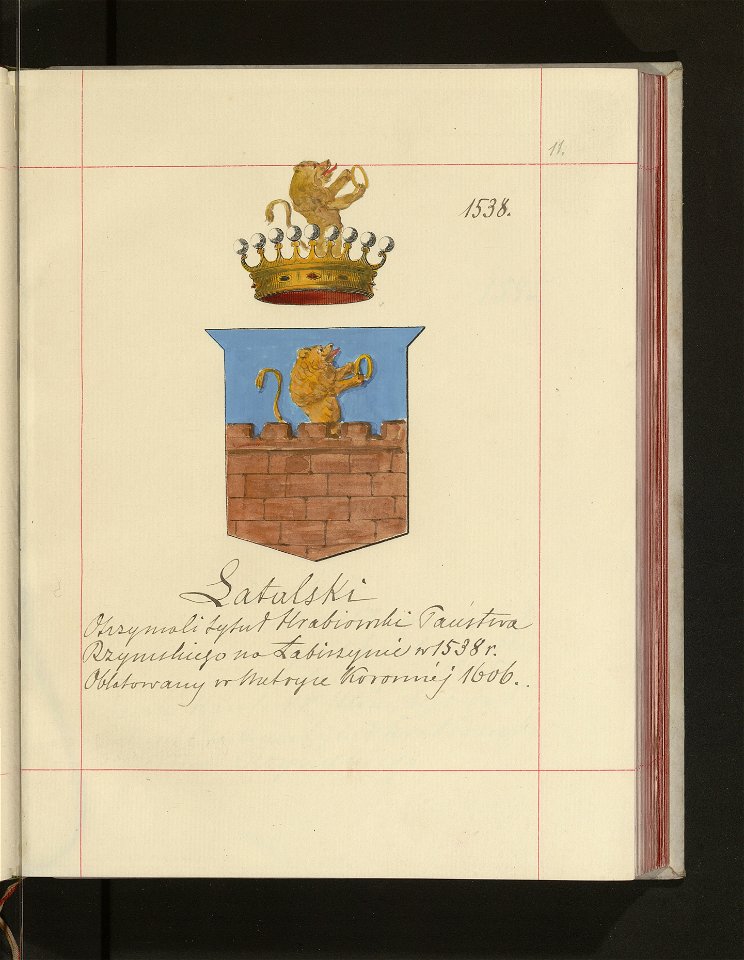 11.
1538.
Latalski
Otrzymali tytuł Hrabiowski Państwa
Rzymskiego na Łabiszynie w 1538 r.
Oblatowany w Metryce Koronnéj 1606.